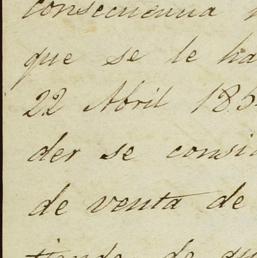 consecuencia
que se le ha
22 Abril 185
der se consi
de venta de
tiendo de qu